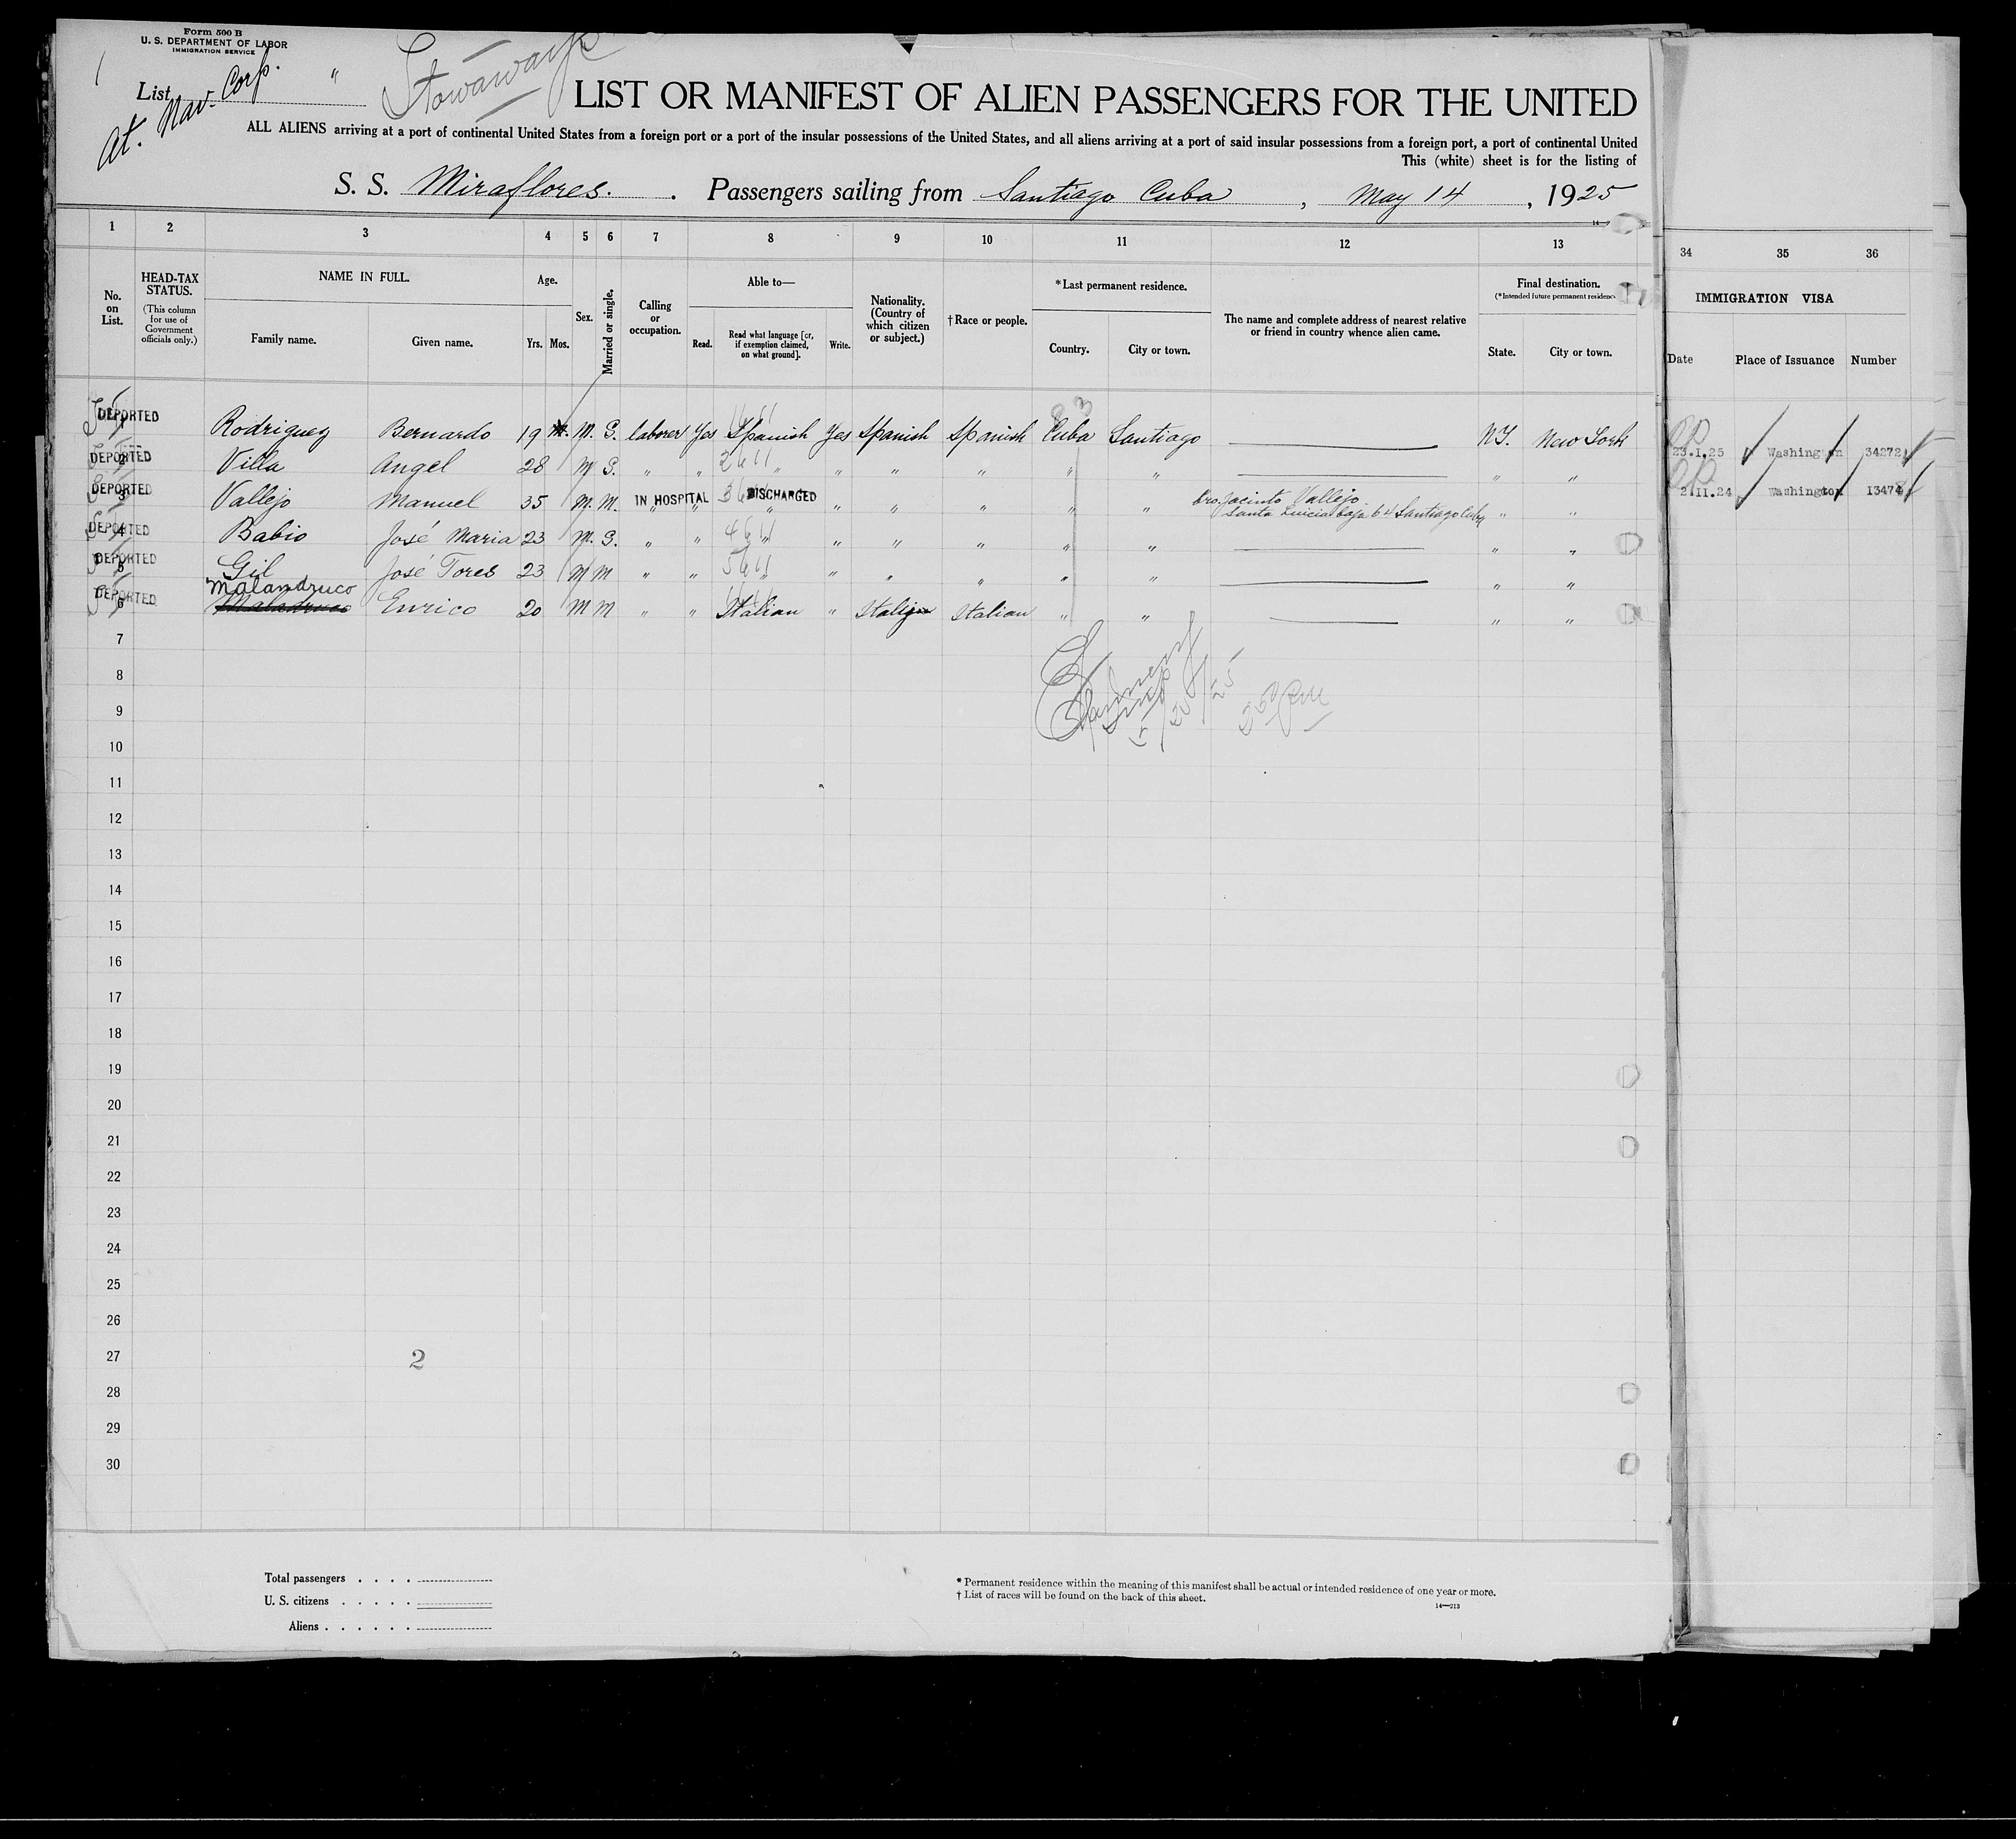 Form 500 B
U. S. DEPARTMENT OF LABOR
IMMIGRATION SERVICE
List
At. Nav. Corp. "
Stowaways
LIST OR MANIFEST OF ALIEN PASSENGERS FOR THE UNITED
ALL ALIENS arriving at a port of continental United States from a foreign port or a port of the insular possessions of the United States, and all aliens arriving at a port of said insular possessions from a foreign port, a port of continental United
This (white) sheet is for the listing of
S. S. Miraflores. . Passengers sailing from Santiago Cuba , May 14 , 1925
1 2 3 4 5 6 7 8 9 10 11 12 13
34 35 36
No. on List.
HEAD-TAX STATUS.
(This column for use of Government officials only.)
NAME IN FULL.
Family name. Given name.
Age.
Yrs. Mos.
Sex.
Married or single.
Calling or occupation.
Able to—
Read. Read what language [or, if exemption claimed, on what ground]. Write.
Nationality. (Country of which citizen or subject.)
† Race or people.
* Last permanent residence.
Country. City or town.
The name and complete address of nearest relative or friend in country whence alien came.
Final destination.
(*Intended future permanent residence
State. City or town.
IMMIGRATION VISA
Date Place of Issuance Number
DEPORTED 1 Rodriguez Bernardo 19 M. S. laborer Yes Spanish Yes Spanish Spanish Cuba Santiago N.Y. New York
23.1.25 Washington 34272
DEPORTED 2 Villa Angel 28 M S. " " " " " " " " " "
2.11.24 Washington 13474
DEPORTED 3 Vallejo Manuel 35 M. M. IN HOSPITAL " " DISCHARGED " " " " " " Bro. Jacinto Vallejo
Santa Lucia baja 64 Santiago Cuba " "
DEPORTED 4 Babio José Maria 23 M. S. " " " " " " " " " "
DEPORTED 5 Gil José Tores 23 M M " " " " " " " " " "
Malandruco
DEPORTED 6 Maladruco Enrico 20 M M " " Italian " Italian Italian " " " "
7
8
5/20/25
9
10
11
12
13
14
15
16
17
18
19
20
21
22
23
24
25
26
27 2
28
29
30
Total passengers . . . .
U. S. citizens . . . . .
Aliens . . . . . .
* Permanent residence within the meaning of this manifest shall be actual or intended residence of one year or more.
† List of races will be found on the back of this sheet.
14—213